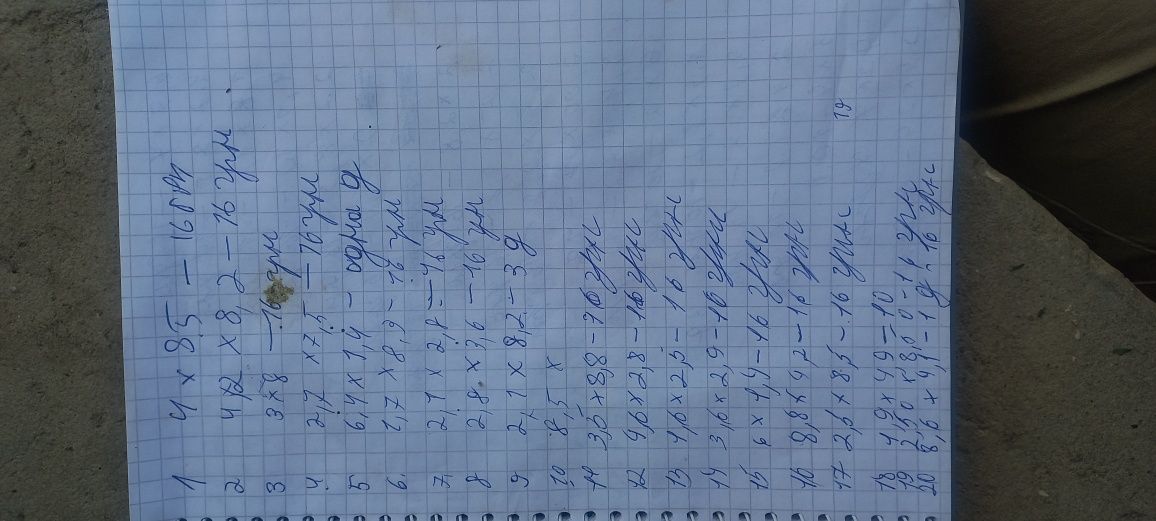 1 4 x 8,5 - 16 грн
2 4,2 x 8,2 - 16 грн
3 3 x 8 - 16 грн
4. 2,7 x 7,5 - 16 грн
5 6,4 x 1,4 - одна д
6. 1,7 x 8,9 - 16 грн
7, 2,1 x 2,8 - 16 ун
8 2,8 x 3,6 - 16 ун
9 2,1 x 8,2 - 3 д
10 8,5 x
11 3,5 x 8,8 - 16 грнс
12 4,6 x 2,8 - 16 грнс
13 4,6 x 2,5 - 16 грнс
14 3,6 x 2,9 - 16 грнс
15 6 x 4,4 - 16 грнс
16 8,8 x 4,2 - 16 грнс
17 2,6 x 8,5 - 16 грнс
1д
18 4,9 x 4,9 - 10
19 2,50 x 8,50 - 16 грнс
20 8,6 x 4,1 - 1 д 16 грнс